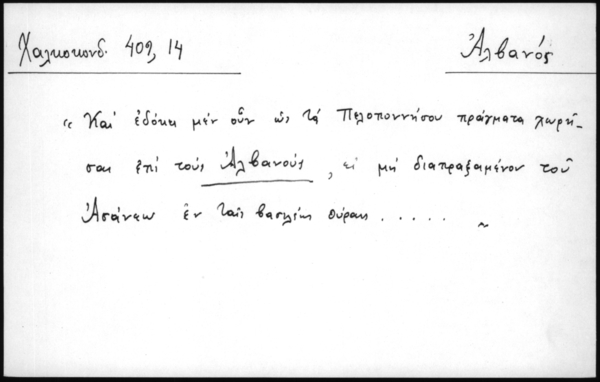 Χαλκοκονδ. 409, 14
Ἀλβανός
“ Καὶ ἐδόκει μὲν οὖν ὡς τὰ Πελοποννήσου πράγματα χωρῆ-
σαι ἐπὶ τοὺς Ἀλβανούς, εἰ μὴ διαπραξαμένου τοῦ
Ἀσάνεω ἐν ταῖς βασιλέως θύραις . . . . . ”